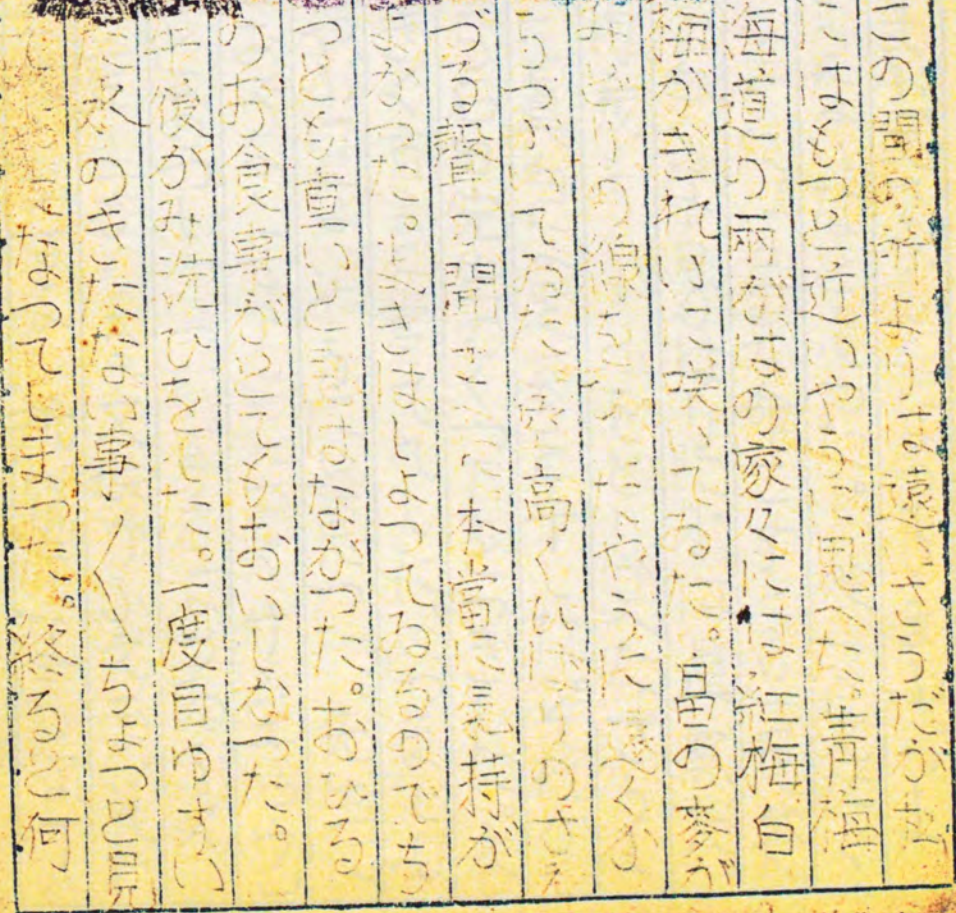 この間の所よりは遠ささうだが
にはもつと近いやうに思へた。青梅
海道の兩がはの家々には紅梅白
梅がきれいに咲いてゐた。畠の麥が
みどりの線を たやうに遠くか
らつゞいてゐた 空高くひばりのさへ
づる聲の聞き 本當に気持が
よかつた。 きはしよつてゐるのでち
つとも重いと思はなかつた。おひる
のお食事がとてもおいしかつた。
午後かみ洗ひをした。一度目ゆすい
だ のきたない事〱 ちよつと見
なつてしまつた。終ると何